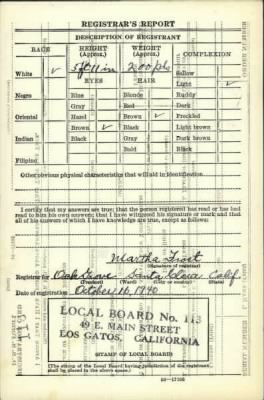 REGISTRAR'S REPORT
DESCRIPTION OF REGISTRANT
RACE HEIGHT (Approx.) WEIGHT (Approx.) COMPLEXION
White ✓ 5 ft 11 in 200 lbs Sallow
EYES HAIR Light ✓
Negro Blue Blonde Ruddy
Gray Red Dark
Oriental Hazel Brown ✓ Freckled
Brown ✓ Black Light brown
Indian Black Gray Dark brown
Bald Black
Filipino
Other obvious physical characteristics that will aid in identification
I certify that my answers are true; that the person registered has read or has had read to him his own answers; that I have witnessed his signature or mark and that all of his answers of which I have knowledge are true, except as follows:
Martha Frost
(Signature of registrar)
Registrar for Oak Grove Santa Clara Calif
(Precinct) (Ward) (City or county) (State)
Date of registration October 16, 1940
LOCAL BOARD No. 113
49 E. MAIN STREET
LOS GATOS, CALIFORNIA
(STAMP OF LOCAL BOARD)
(The stamp of the Local Board having jurisdiction of the registrant shall be placed in the above space.)